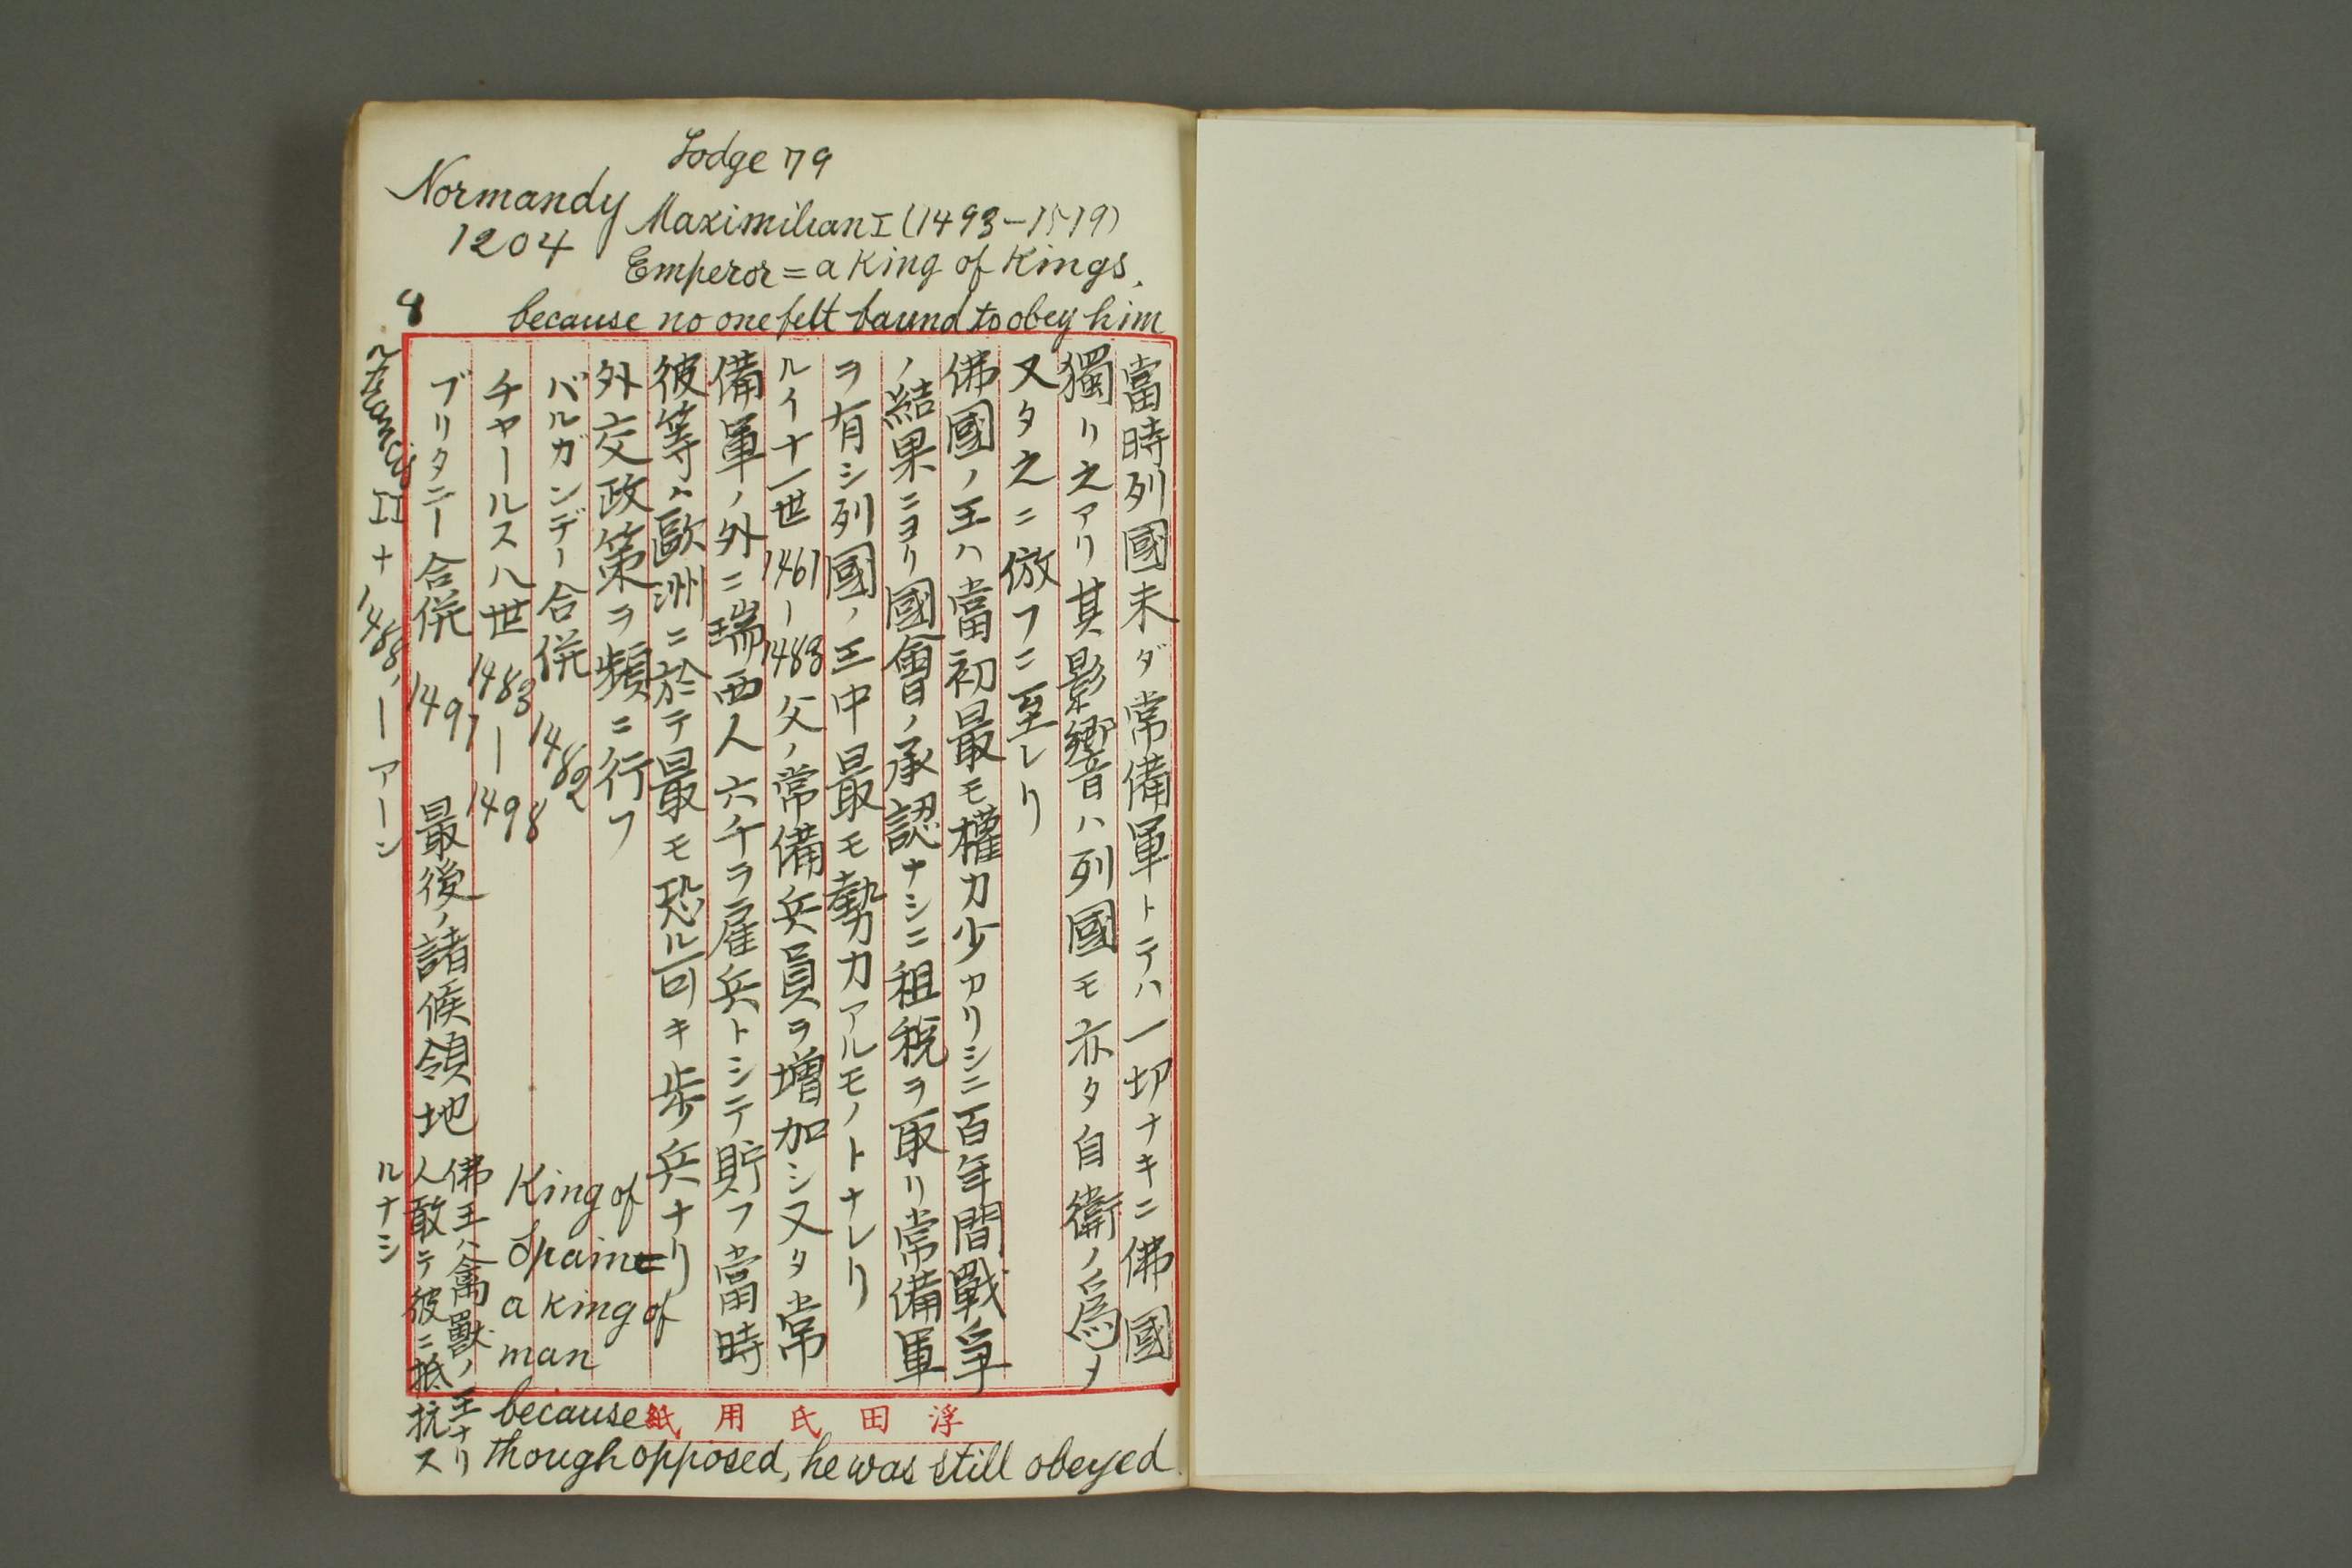 Lodge 79
Normandy
1204
Maximilian I (1493-1519)
Emperor = a King of Kings,
because no one felt baund to obey him
8
當時列國未ダ常備軍トテハ一切ナキニ佛國
獨リ之アリ其影響ハ列國モ亦タ自衛ノ爲メ
又タ之ニ倣フニ至レリ
佛國ノ王ハ當初最モ權力少カリシニ百年間戰爭
ノ結果ニヨリ國會ノ承認ナシニ租税ヲ取リ常備軍
ヲ有シ列國ノ王中最モ勢力アルモノトナレリ
ルイ十一世 1461-1483 父ノ常備兵員ヲ増加シ又タ常
備軍ノ外ニ瑞西人六千ヲ雇兵トシテ貯フ當時
彼等ハ歐洲ニ於テ最モ恐ル可キ歩兵ナリ
外交政策ヲ頻ニ行フ
バルガンデー合併 1482
チャールス八世 1483-1498
ブリタニー合併 1491 最後ノ諸候領地
II + 1488, ーアーン
King of
Spain =
a King of
man
because
though opposed, he was still obeyed.
佛王ハ禽獸ノ王ナリ
人敢テ彼ニ抵抗ス
ルナシ
浮田氏用紙